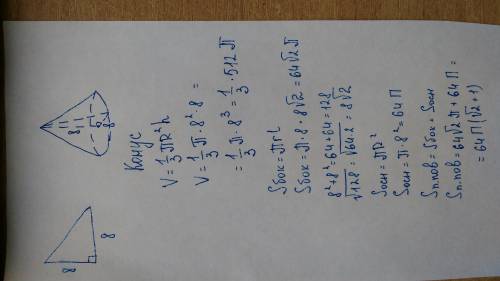 8
8
8
8
Конус
V = 1/3 πR²h
V = 1/3 π · 8² · 8 =
= 1/3 π · 8³ = 1/3 · 512 π
Sбок = πrl
Sбок = π · 8 · 8√2 = 64√2 π
8² + 8² = 64 + 64 = 128
√128 = √64·2 = 8√2
Sосн = πR²
Sосн = π · 8² = 64π
Sп.пов = Sбок + Sосн
Sп.пов = 64√2 π + 64π =
= 64π(√2 + 1)